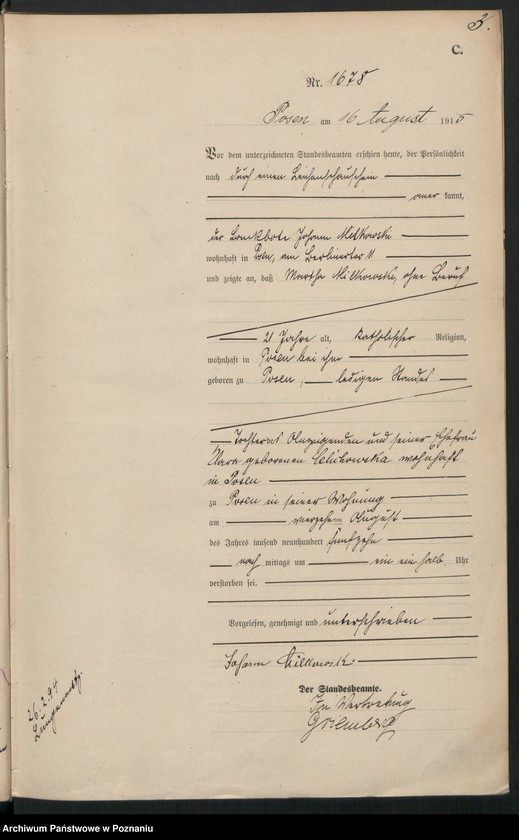 3.
C.
Nr. 1678
Posen am 16 August 1915
Vor dem unterzeichneten Standesbeamten erschien heute, der Persönlichkeit
nach durch einen Leichenschauschein
aner kannt,
der Johann Milkowski
wohnhaft in Posen, am Berlinertor 11
und zeigte an, daß Martha Milkowski, ohne Beruf
21 Jahre alt, katholischer Religion,
wohnhaft in Posen bei ihm
geboren zu Posen, ledigen Standes
Tochter des Anzeigenden und seiner Ehefrau
Klara geborenen wohnhaft
in Posen
zu Posen in seiner Wohnung
am vierzehnten August
des Jahres tausend neunhundert fünfzehn
nach mittags um ein ein halb Uhr
verstorben sei.
Vorgelesen, genehmigt und unterschrieben
Johann Milkowski
Der Standesbeamte.
In Vertretung
26.2.94
Lungen
Archiwum Państwowe w Poznaniu